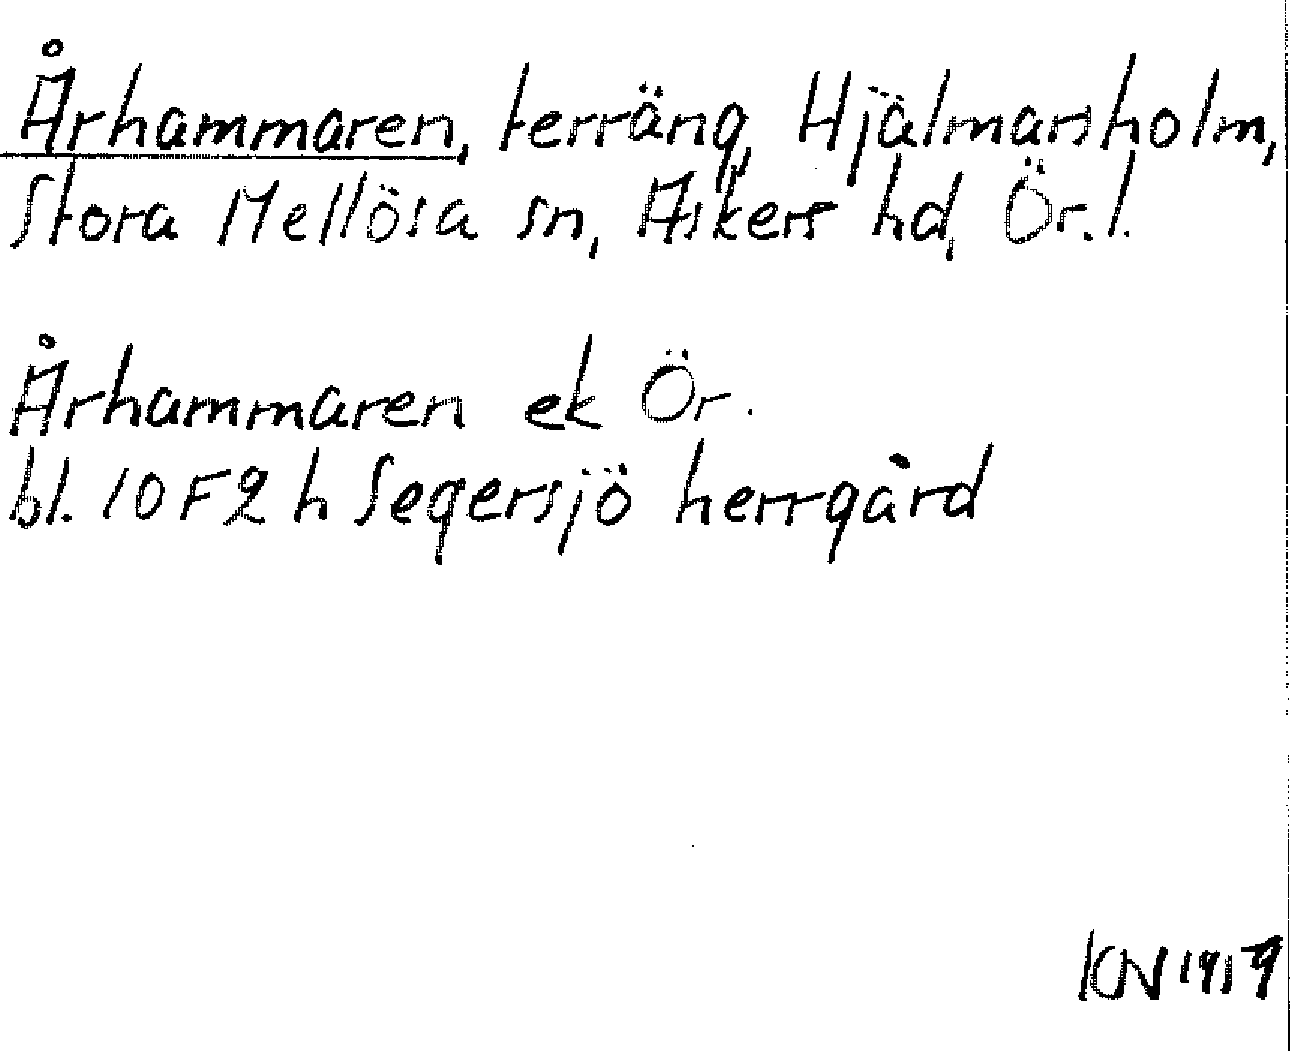 Århammaren, terräng, Hjälmarsholm,
Stora Mellösa sn, Askers hd, Ör. l.
Århammaren ek Ör.
bl. 10F2h Segersjö herrgård
KN 1919